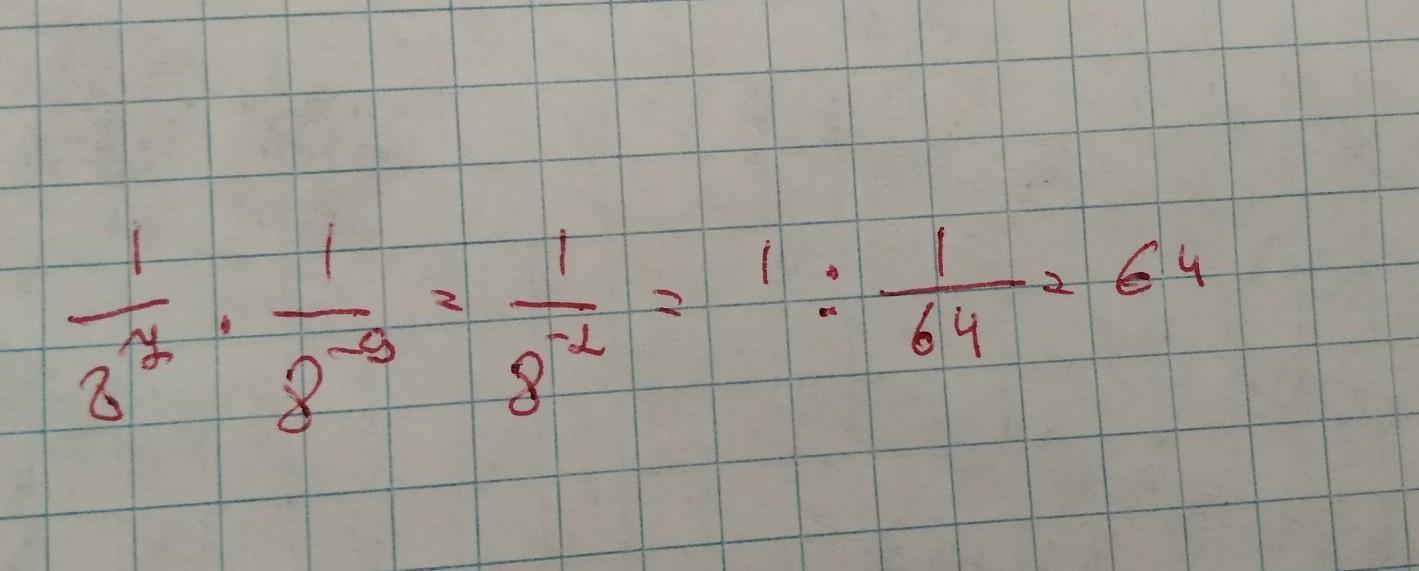 $\frac{1}{8^{7}} \cdot \frac{1}{8^{-9}} = \frac{1}{8^{-2}} = 1 : \frac{1}{64} = 64$